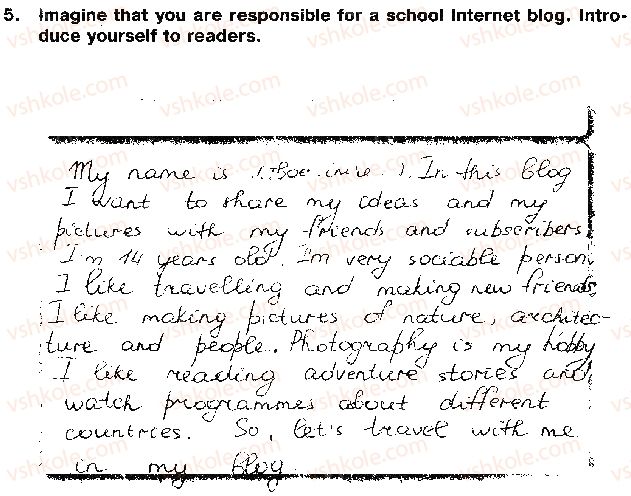 5. Imagine that you are responsible for a school Internet blog. Intro-
duce yourself to readers.
My name is (Ваше имя). In this blog
I want to share my ideas and my
pictures with my friends and subscribers.
I'm 14 years old. I'm very sociable person.
I like travelling and making new friends.
I like making pictures of nature, architec-
ture and people. Photography is my hobby
I like reading adventure stories and
watch programmes about different
countries. So, let's travel with me
in my blog
vshkole.com